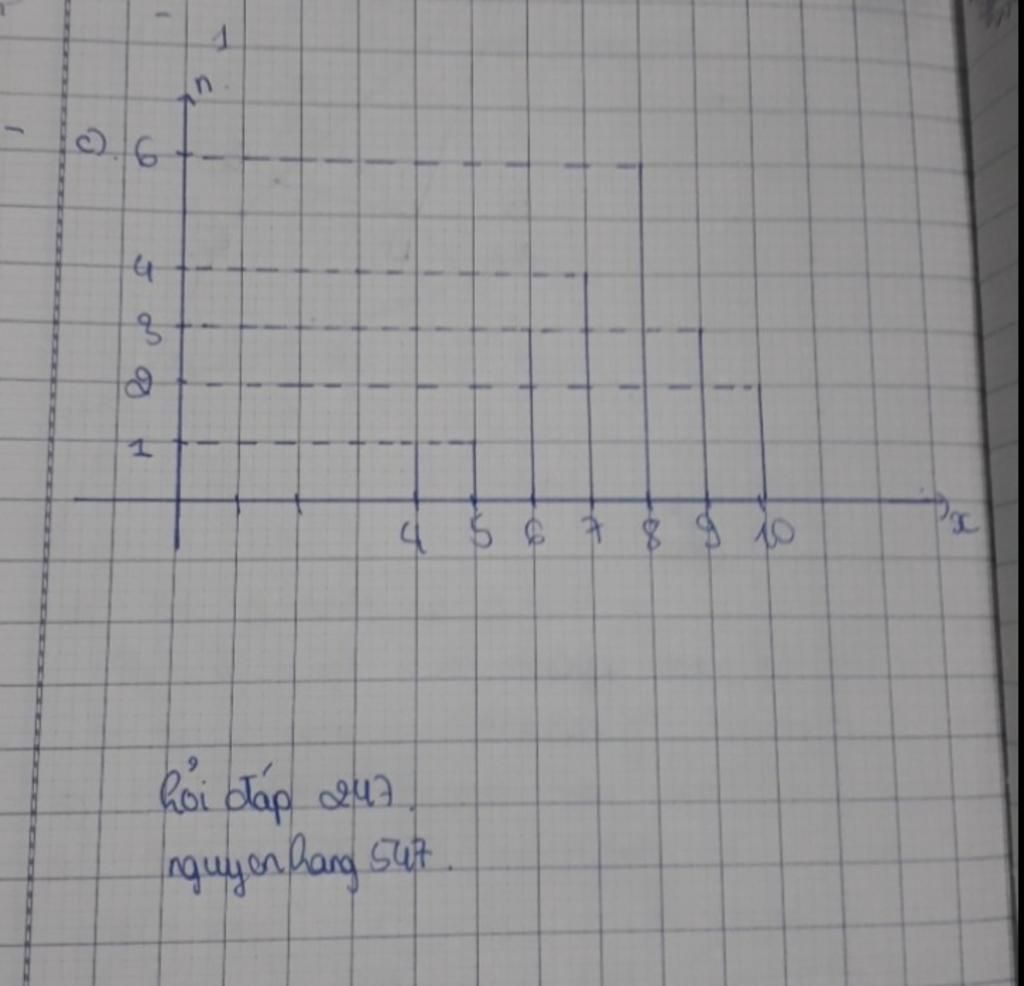 1
n
c) 6
4
3
2
1
4 5 6 7 8 9 10 x
hỏi đáp 247.
nguyenhang547.